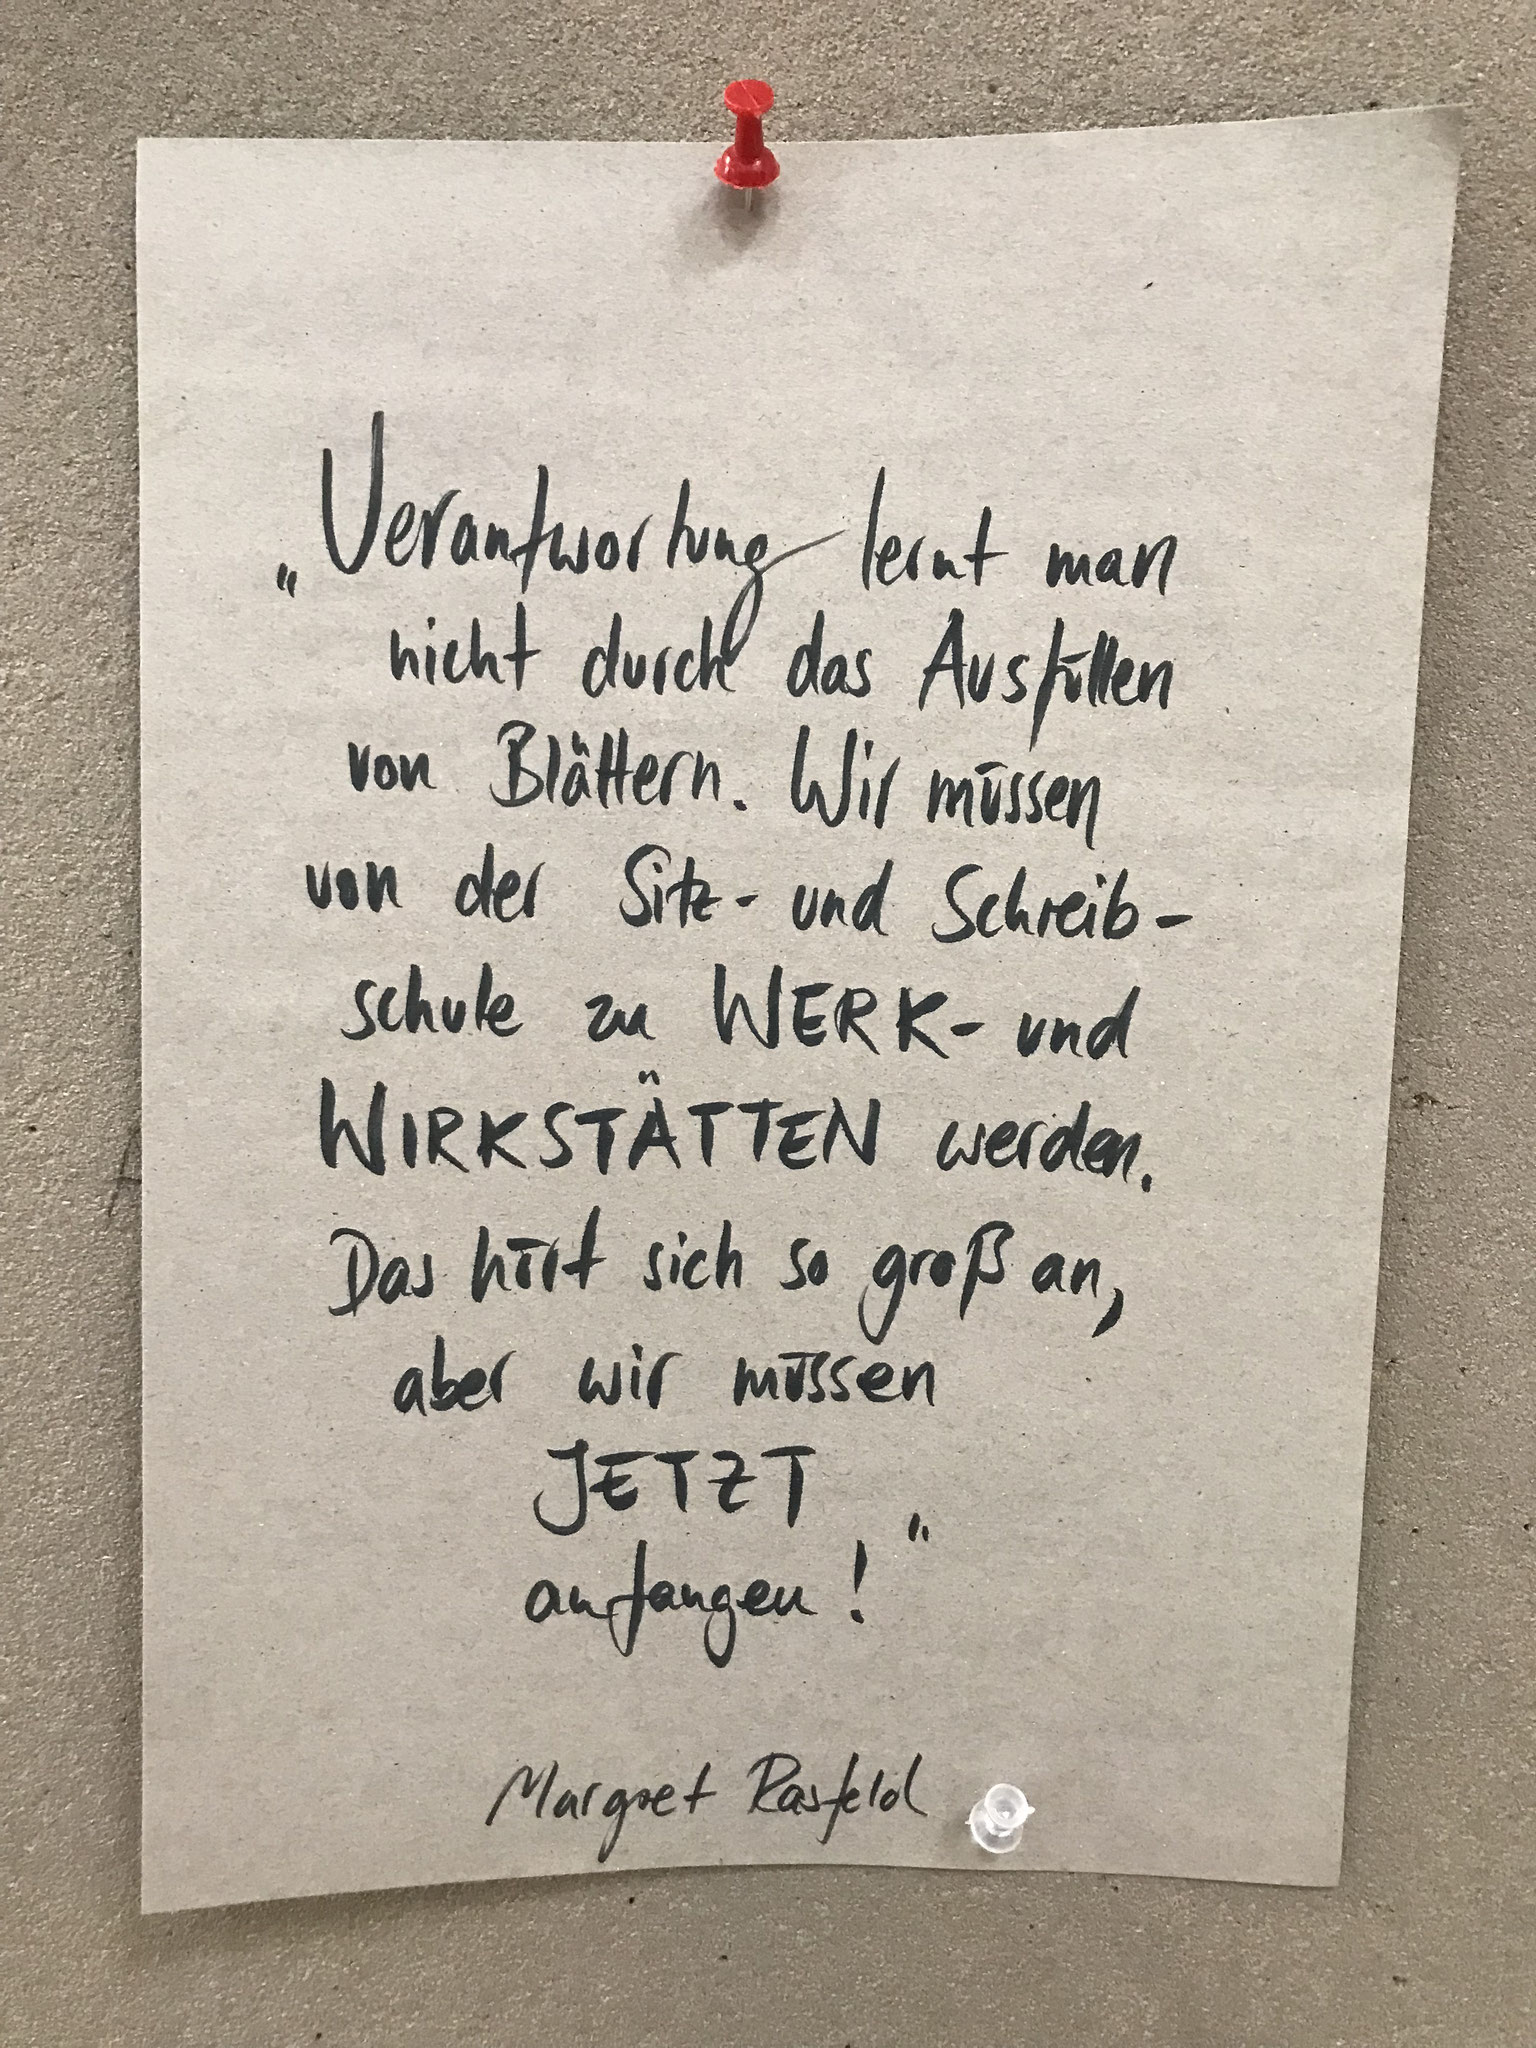 „Verantwortung lernt man
nicht durch das Ausfüllen
von Blättern. Wir müssen
von der Sitz- und Schreib-
schule zu WERK- und
WIRKSTÄTTEN werden.
Das hört sich so groß an,
aber wir müssen
JETZT
anfangen!"
Margret Rasfeld